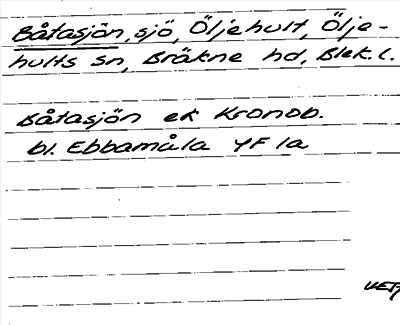 Båtasjön, sjö, Öljehult, Ölje-
hults sn, Bräkne hd, Blek. l.
Båtasjön ek Kronob.
bl. Ebbamåla YF 1a